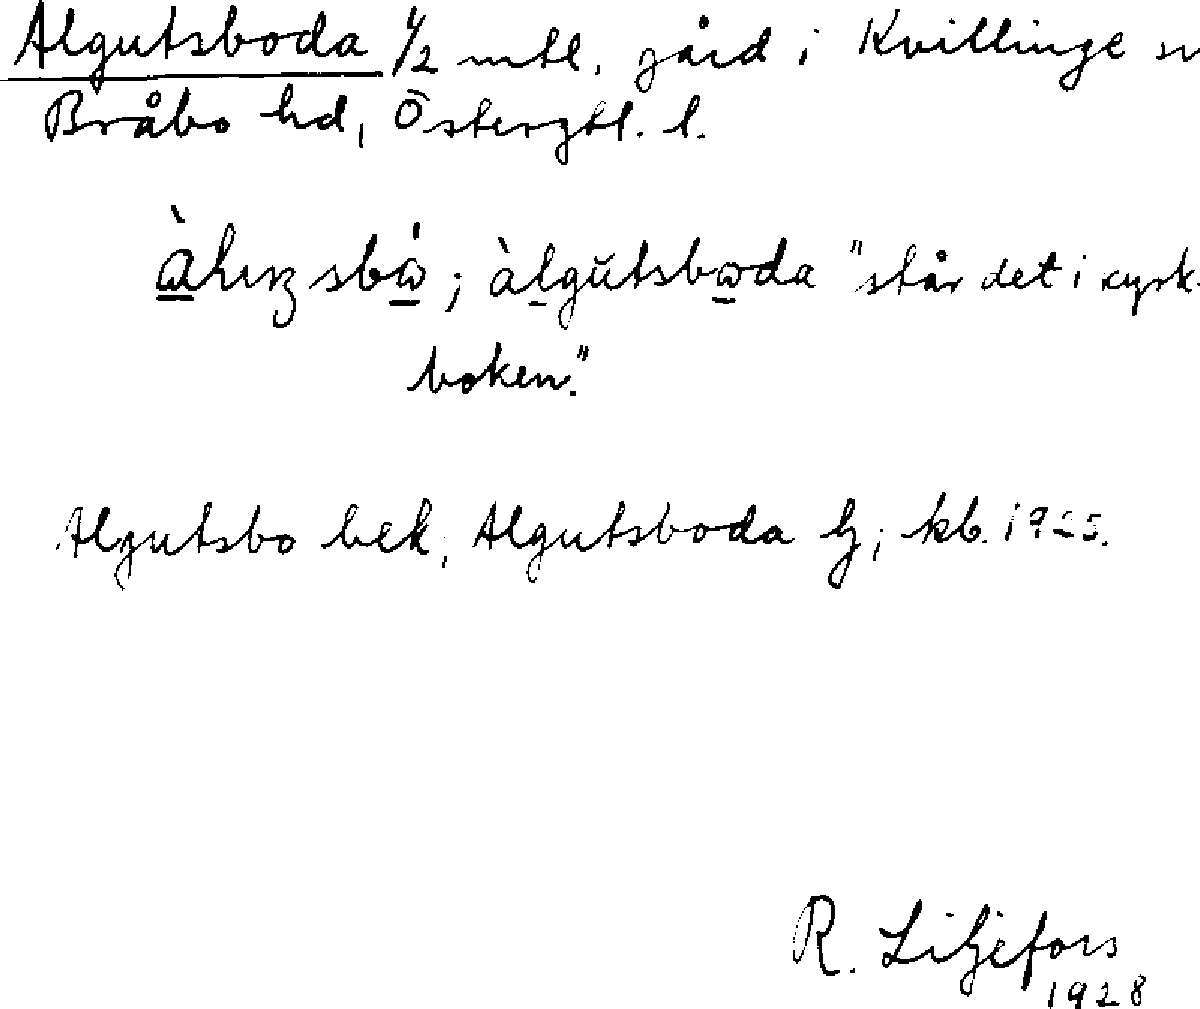 Algutsboda 1/2 mtl. gård i Kvillinge sn
Bråbo hd, Östergtl. l.
àlgutsboda "står det i kyrk-
boken."
Algutsbo bek, Algutsboda lj; kb. 1925.
R. Liljefors
1928